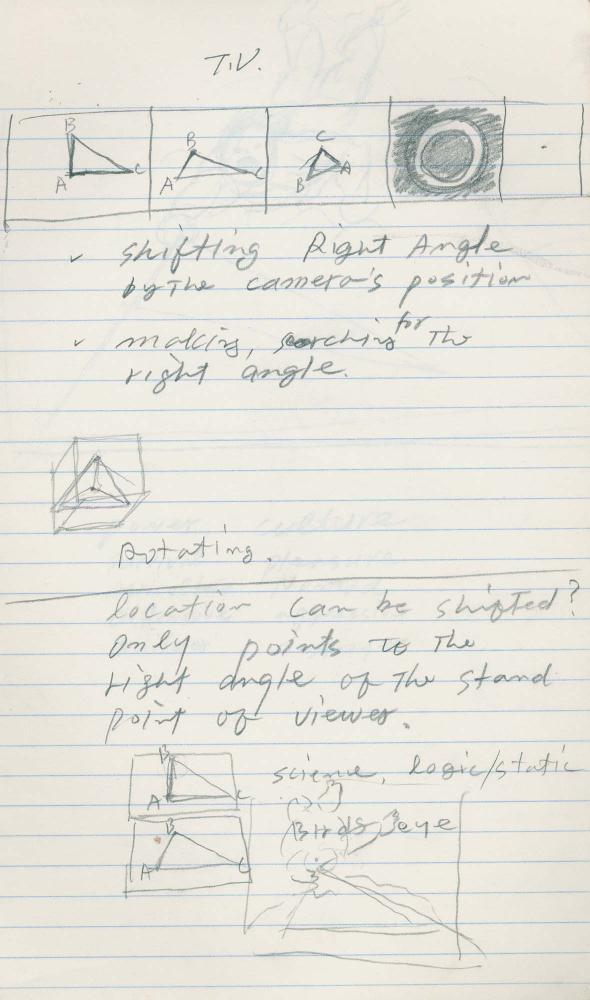 T.V.
B
A C
B
A C
C
B A
✓ shifting Right Angle
by the camera's position
✓ making, searching for the
right angle.
Rotating.
location can be shifted?
Only points to the
right angle of the stand
point of viewer.
B
A C
science, logic/static
Birds eye
B
A C